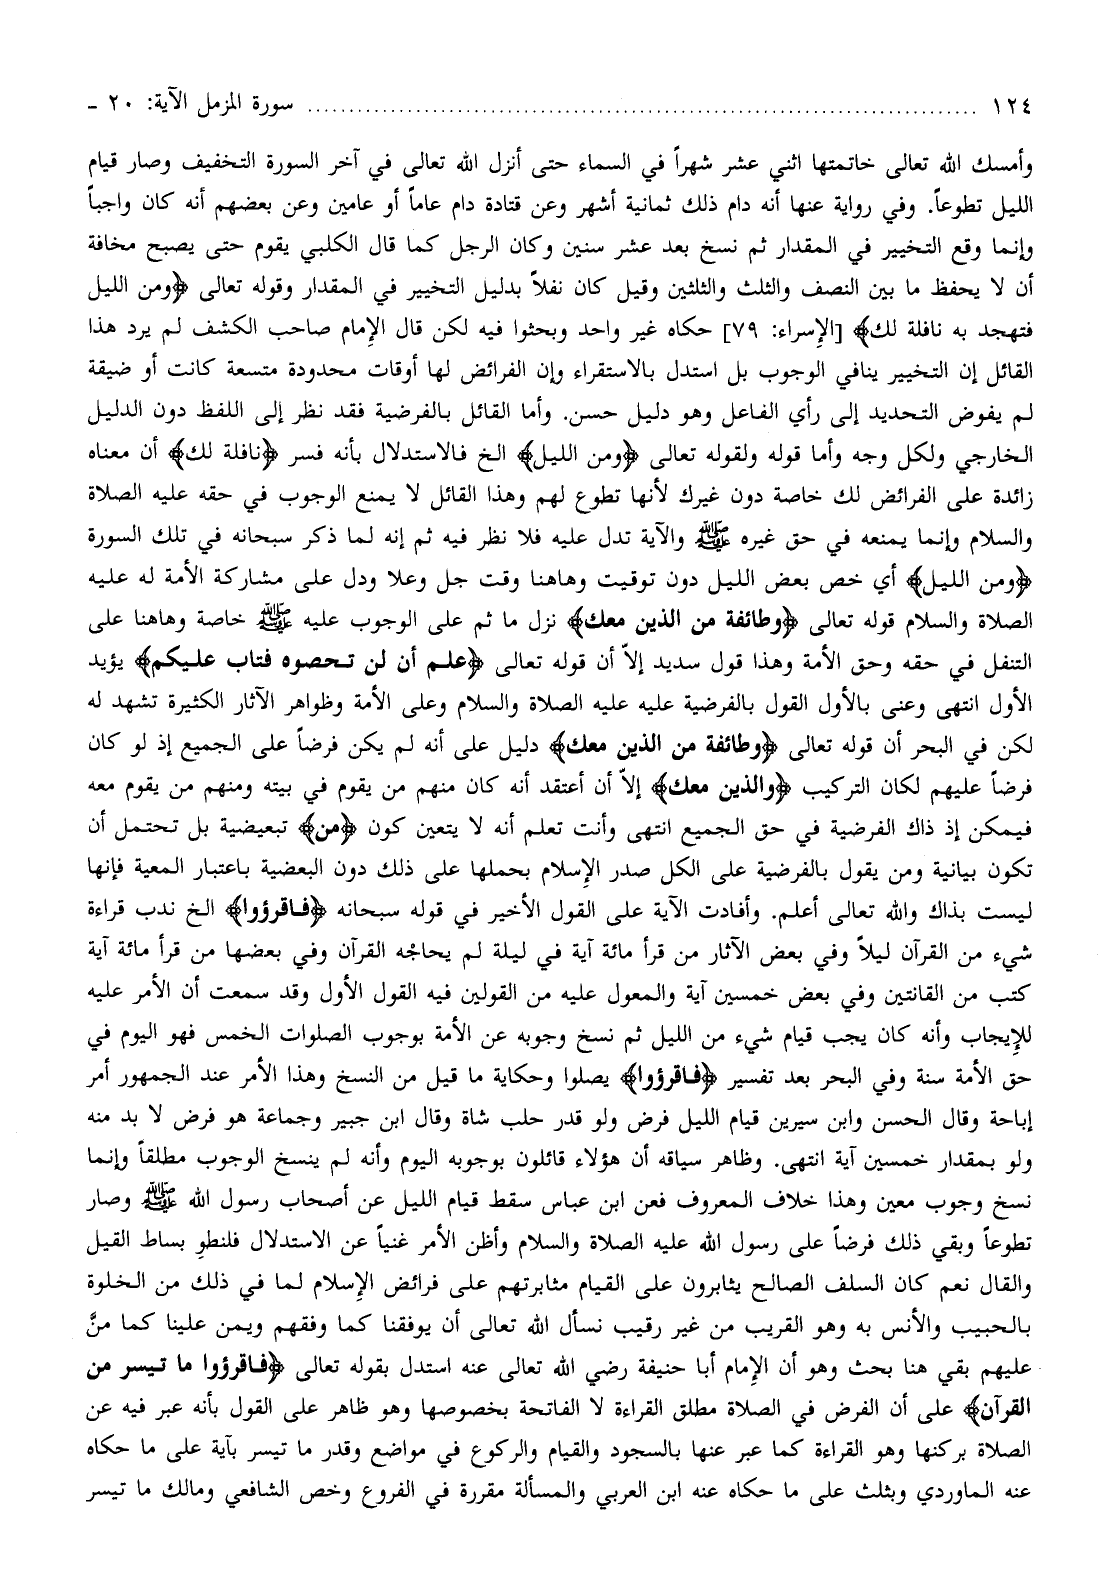 ١٢٤ ........................................................................ سورة المزمل الآية: ٢٠ ـ
وأمسك الله تعالى خاتمتها اثني عشر شهراً في السماء حتى أنزل الله تعالى في آخر السورة التخفيف وصار قيام
الليل تطوعاً. وفي رواية عنها أنه دام ذلك ثمانية أشهر وعن قتادة دام عاماً أو عامين وعن بعضهم أنه كان واجباً
وإنما وقع التخيير في المقدار ثم نسخ بعد عشر سنين وكان الرجل كما قال الكلبي يقوم حتى يصبح مخافة
أن لا يحفظ ما بين النصف والثلث والثلثين وقيل كان نفلاً بدليل التخيير في المقدار وقوله تعالى ﴿ومن الليل
فتهجد به نافلة لك﴾ [الإسراء: ٧٩] حكاه غير واحد وبحثوا فيه لكن قال الإمام صاحب الكشف لم يرد هذا
القائل إن التخيير ينافي الوجوب بل استدل بالاستقراء وإن الفرائض لها أوقات محدودة متسعة كانت أو ضيقة
لم يفوض التحديد إلى رأي الفاعل وهو دليل حسن. وأما القائل بالفرضية فقد نظر إلى اللفظ دون الدليل
الخارجي ولكل وجه وأما قوله ولقوله تعالى ﴿ومن الليل﴾ الخ فالاستدلال بأنه فسر ﴿نافلة لك﴾ أن معناه
زائدة على الفرائض لك خاصة دون غيرك لأنها تطوع لهم وهذا القائل لا يمنع الوجوب في حقه عليه الصلاة
والسلام وإنما يمنعه في حق غيره ﷺ والآية تدل عليه فلا نظر فيه ثم إنه لما ذكر سبحانه في تلك السورة
﴿ومن الليل﴾ أي خص بعض الليل دون توقيت وهاهنا وقت جل وعلا ودل على مشاركة الأمة له عليه
الصلاة والسلام قوله تعالى ﴿وطائفة من الذين معك﴾ نزل ما ثم على الوجوب عليه ﷺ خاصة وهاهنا على
التنفل في حقه وحق الأمة وهذا قول سديد إلاّ أن قوله تعالى ﴿علم أن لن تحصوه فتاب عليكم﴾ يؤيد
الأول انتهى وعنى بالأول القول بالفرضية عليه عليه الصلاة والسلام وعلى الأمة وظواهر الآثار الكثيرة تشهد له
لكن في البحر أن قوله تعالى ﴿وطائفة من الذين معك﴾ دليل على أنه لم يكن فرضاً على الجميع إذ لو كان
فرضاً عليهم لكان التركيب ﴿والذين معك﴾ إلاّ أن أعتقد أنه كان منهم من يقوم في بيته ومنهم من يقوم معه
فيمكن إذ ذاك الفرضية في حق الجميع انتهى وأنت تعلم أنه لا يتعين كون ﴿من﴾ تبعيضية بل تحتمل أن
تكون بيانية ومن يقول بالفرضية على الكل صدر الإسلام يحملها على ذلك دون البعضية باعتبار المعية فإنها
ليست بذاك والله تعالى أعلم. وأفادت الآية على القول الأخير في قوله سبحانه ﴿فاقرؤوا﴾ الخ ندب قراءة
شيء من القرآن ليلاً وفي بعض الآثار من قرأ مائة آية في ليلة لم يحاجه القرآن وفي بعضها من قرأ مائة آية
كتب من القانتين وفي بعض خمسين آية والمعول عليه من القولين فيه القول الأول وقد سمعت أن الأمر عليه
للإيجاب وأنه كان يجب قيام شيء من الليل ثم نسخ وجوبه عن الأمة بوجوب الصلوات الخمس فهو اليوم في
حق الأمة سنة وفي البحر بعد تفسير ﴿فاقرؤوا﴾ يصلوا وحكاية ما قيل من النسخ وهذا الأمر عند الجمهور أمر
إباحة وقال الحسن وابن سيرين قيام الليل فرض ولو قدر حلب شاة وقال ابن جبير وجماعة هو فرض لا بد منه
ولو بمقدار خمسين آية انتهى. وظاهر سياقه أن هؤلاء قائلون بوجوبه اليوم وأنه لم ينسخ الوجوب مطلقاً وإنما
نسخ وجوب معين وهذا خلاف المعروف فعن ابن عباس سقط قيام الليل عن أصحاب رسول الله ﷺ وصار
تطوعاً وبقي ذلك فرضاً على رسول الله عليه الصلاة والسلام وأظن الأمر غنياً عن الاستدلال فلنطوِ بساط القيل
والقال نعم كان السلف الصالح يثابرون على القيام مثابرتهم على فرائض الإسلام لما في ذلك من الخلوة
بالحبيب والأنس به وهو القريب من غير رقيب نسأل الله تعالى أن يوفقنا كما وفقهم ويمن علينا كما منَّ
عليهم بقي هنا بحث وهو أن الإمام أبا حنيفة رضي الله تعالى عنه استدل بقوله تعالى ﴿فاقرؤوا ما تيسر من
القرآن﴾ على أن الفرض في الصلاة مطلق القراءة لا الفاتحة بخصوصها وهو ظاهر على القول بأنه عبر فيه عن
الصلاة بركنها وهو القراءة كما عبر عنها بالسجود والقيام والركوع في مواضع وقدر ما تيسر بآية على ما حكاه
عنه الماوردي وبثلث على ما حكاه عنه ابن العربي والمسألة مقررة في الفروع وخص الشافعي ومالك ما تيسر